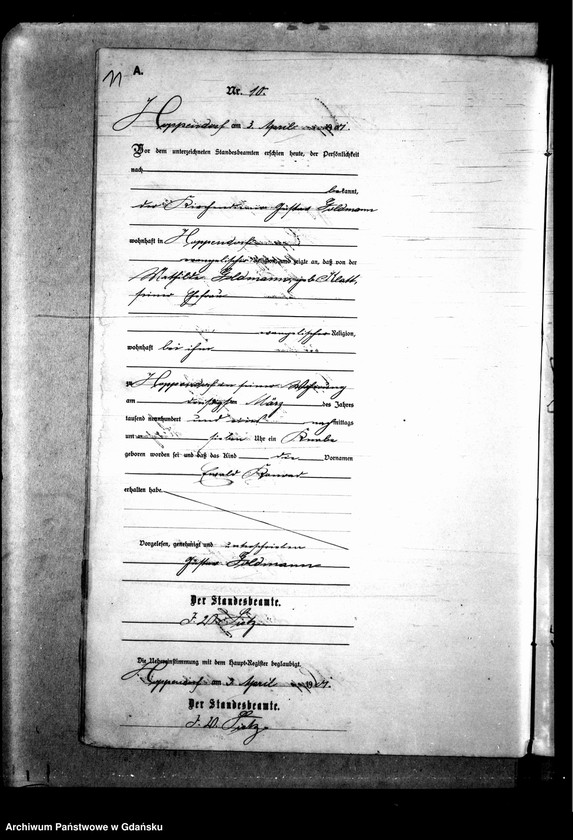 11
A.
Nr. 10.
Hoppendorf am 3. April 1901.
Vor dem unterzeichneten Standesbeamten erschien heute, der Persönlichkeit
nach
bekannt,
der Gustav Goldmann
wohnhaft in Hoppendorf
evangelischer Religion, und zeigte an, daß von der
Mathilde Goldmann, geb. Klatt,
seiner Ehefrau
evangelischer Religion,
wohnhaft bei ihm
zu Hoppendorf in seiner Wohnung
am März des Jahres
tausend neunhundert und eins nachmittags
um sieben Uhr ein Knabe
geboren worden sei und daß das Kind die Vornamen
Ewald Konrad
erhalten habe.
Vorgelesen, genehmigt und unterschrieben
Gustav Goldmann
Der Standesbeamte.
Die Uebereinstimmung mit dem Haupt-Register beglaubigt.
Hoppendorf am 3. April 1901.
Der Standesbeamte.
Archiwum Państwowe w Gdańsku